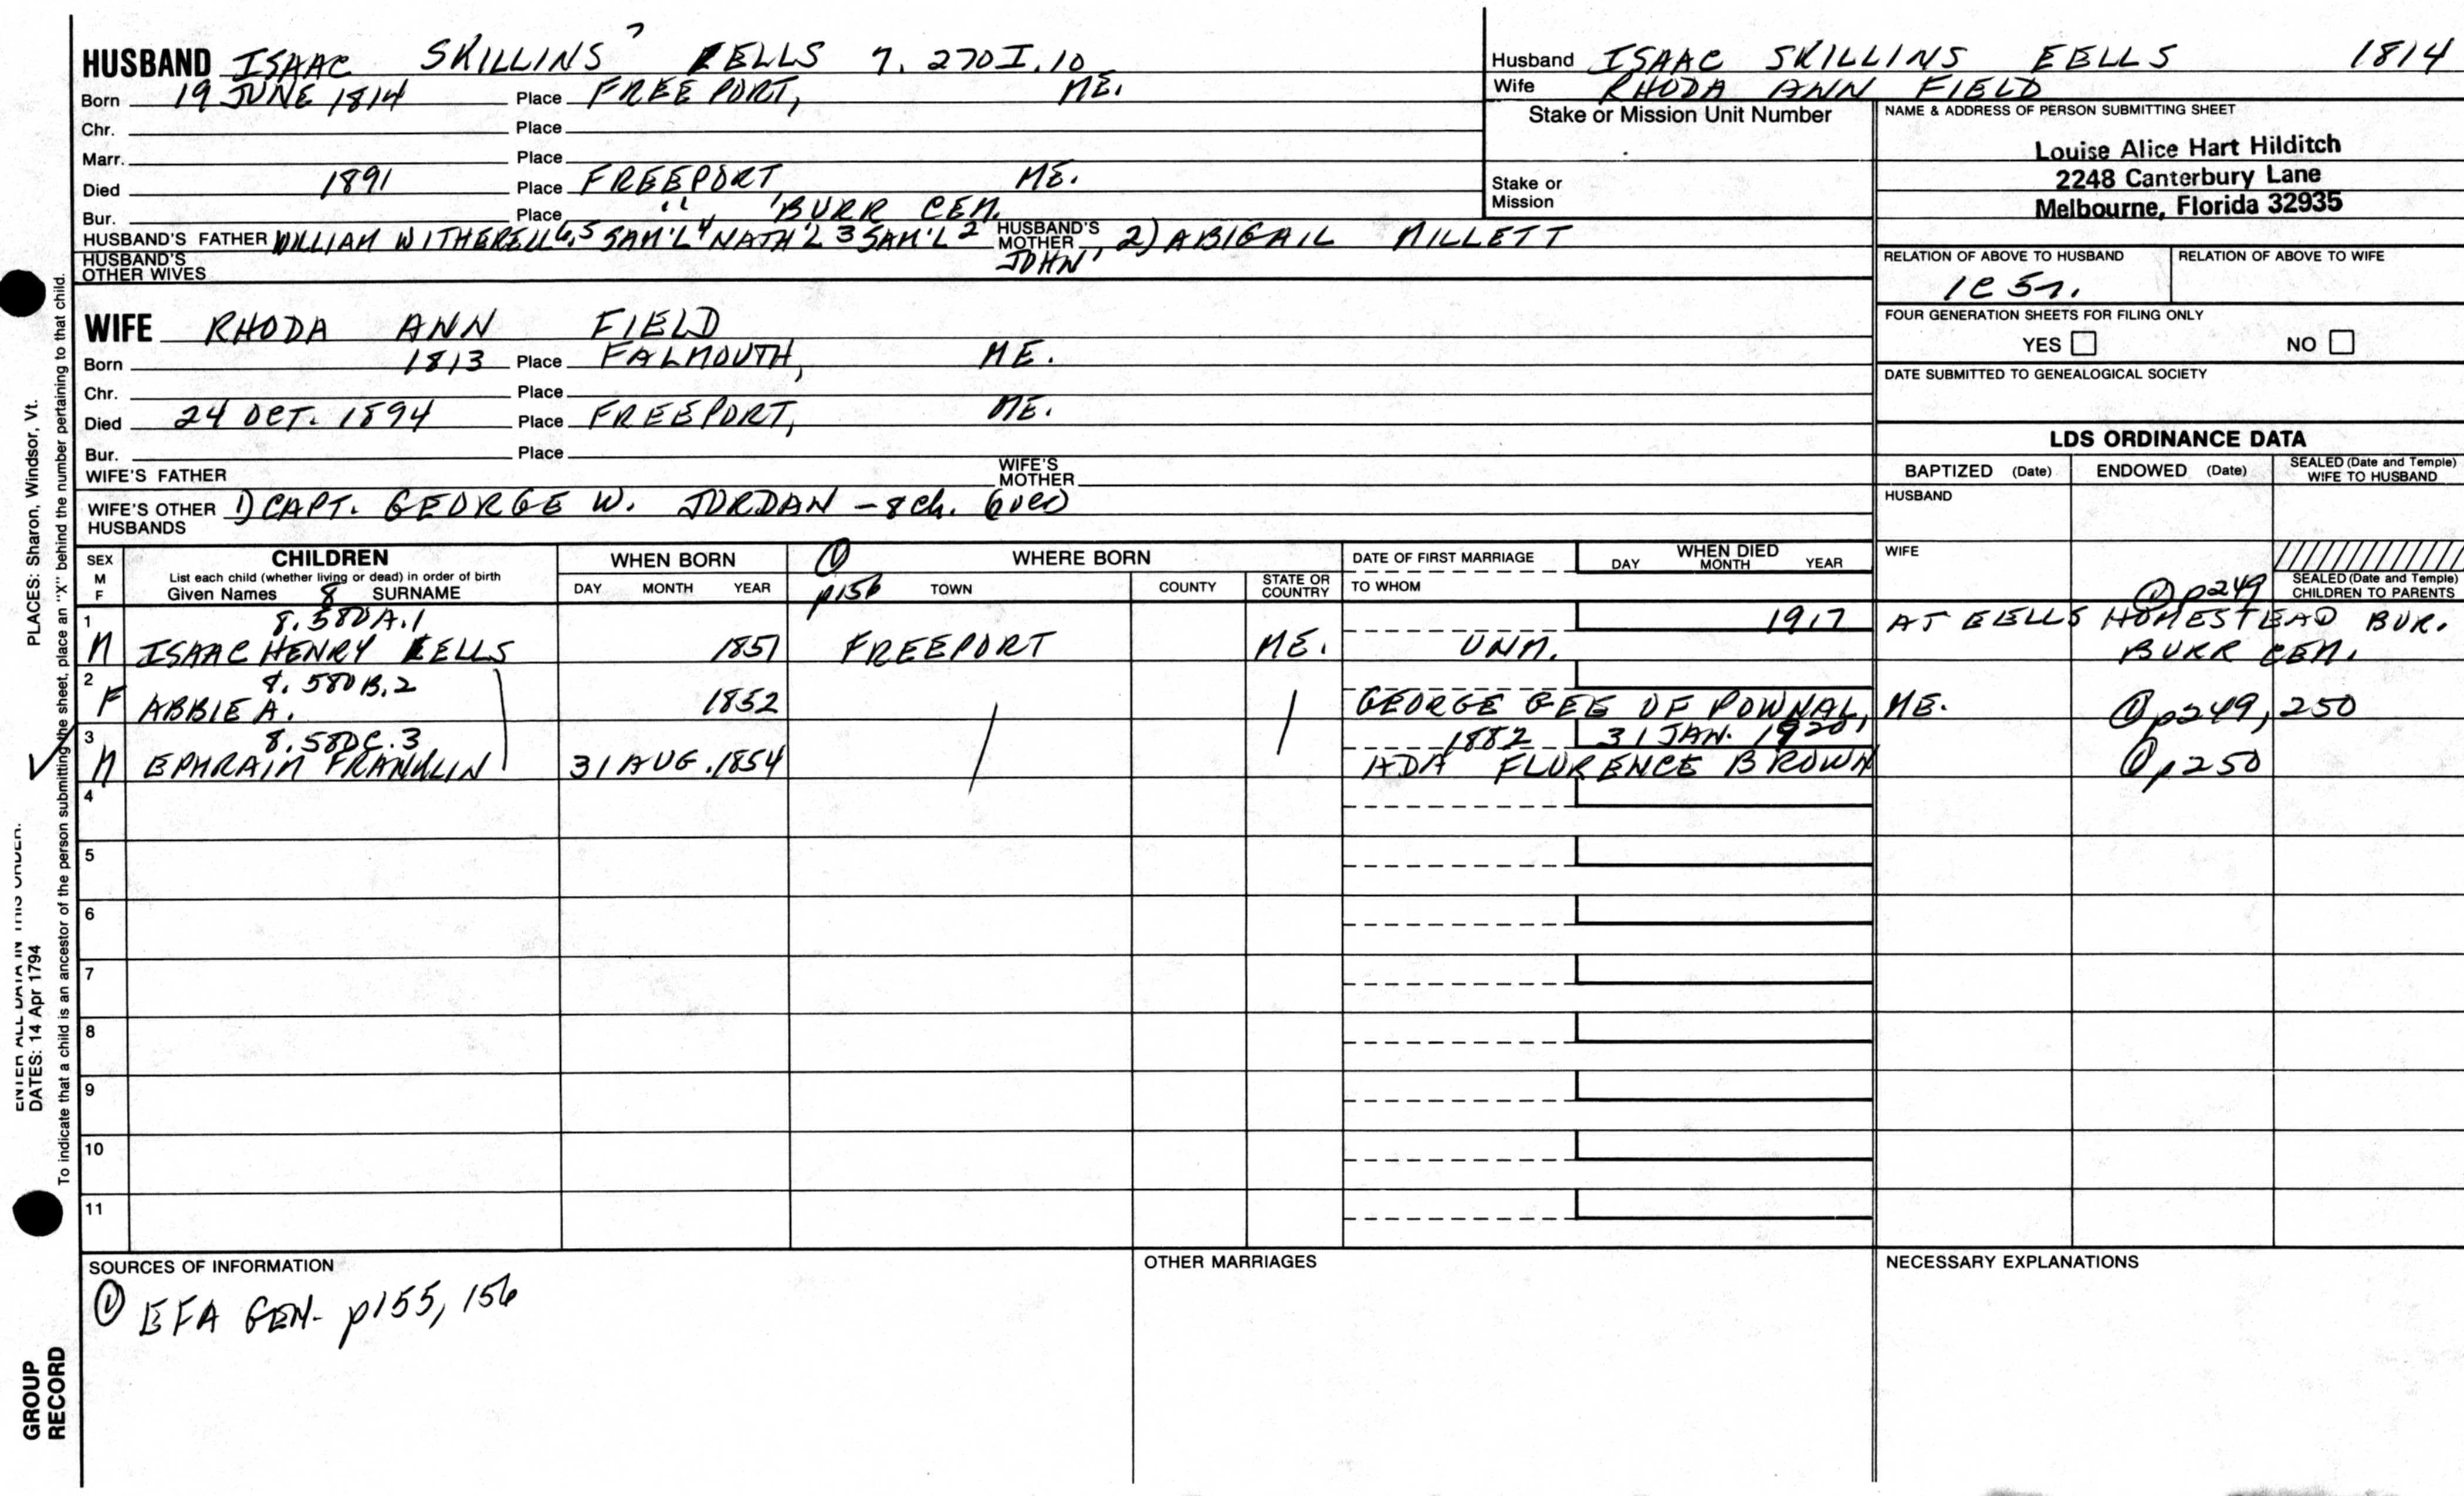 HUSBAND ISAAC SKILLINS 7 EELLS 7. 270I.10
Born 19 JUNE 1814 Place FREEPORT, ME.
Chr. Place
Marr. Place
Died 1891 Place FREEPORT ME.
Bur. Place " BURR CEM.
HUSBAND'S FATHER WILLIAM WITHERELL 6,5 SAM'L 4 NATH'L 3 SAM'L 2 JOHN 1 HUSBAND'S MOTHER 2) ABIGAIL MILLETT
HUSBAND'S OTHER WIVES
WIFE RHODA ANN FIELD
Born 1813 Place FALMOUTH, ME.
Chr. Place
Died 24 OCT. 1894 Place FREEPORT, ME.
Bur. Place
WIFE'S FATHER WIFE'S MOTHER
WIFE'S OTHER HUSBANDS 1) CAPT. GEORGE W. JORDAN - 8 ch. (over)
Husband ISAAC SKILLINS EELLS 1814
Wife RHODA ANN FIELD
Stake or Mission Unit Number
Stake or Mission
NAME & ADDRESS OF PERSON SUBMITTING SHEET
Louise Alice Hart Hilditch
2248 Canterbury Lane
Melbourne, Florida 32935
RELATION OF ABOVE TO HUSBAND RELATION OF ABOVE TO WIFE
1c 5r.
FOUR GENERATION SHEETS FOR FILING ONLY
YES NO
DATE SUBMITTED TO GENEALOGICAL SOCIETY
LDS ORDINANCE DATA
BAPTIZED (Date) ENDOWED (Date) SEALED (Date and Temple) WIFE TO HUSBAND
HUSBAND
WIFE
① p249 SEALED (Date and Temple) CHILDREN TO PARENTS
SEX M F CHILDREN WHEN BORN ① WHERE BORN DATE OF FIRST MARRIAGE WHEN DIED
List each child (whether living or dead) in order of birth
Given Names 8 SURNAME DAY MONTH YEAR p156 TOWN COUNTY STATE OR COUNTRY TO WHOM DAY MONTH YEAR
1 8.580A.1 1917 AT EELLS HOMESTEAD BUR.
M ISAAC HENRY EELLS 1851 FREEPORT ME. UNM. BURR CEM.
2 8.580B.2
F ABBIE A. 1852 GEORGE GEE OF POWNAL, ME. ① p249, 250
3 8.580C.3 1882 31 JAN. 1920
M EPHRAIM FRANKLIN 31 AUG. 1854 ADA FLORENCE BROWN ① p250
4
5
6
7
8
9
10
11
SOURCES OF INFORMATION OTHER MARRIAGES NECESSARY EXPLANATIONS
① EFA GEN- p155, 156
ENTER ALL DATA IN THIS ORDER:
DATES: 14 Apr 1794 PLACES: Sharon, Windsor, Vt.
To indicate that a child is an ancestor of the person submitting the sheet, place an "X" behind the number pertaining to that child.
GROUP RECORD